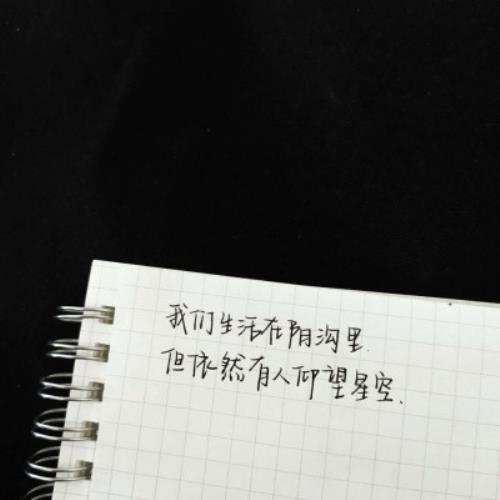 我们生活在阴沟里.
但依然有人仰望星空.